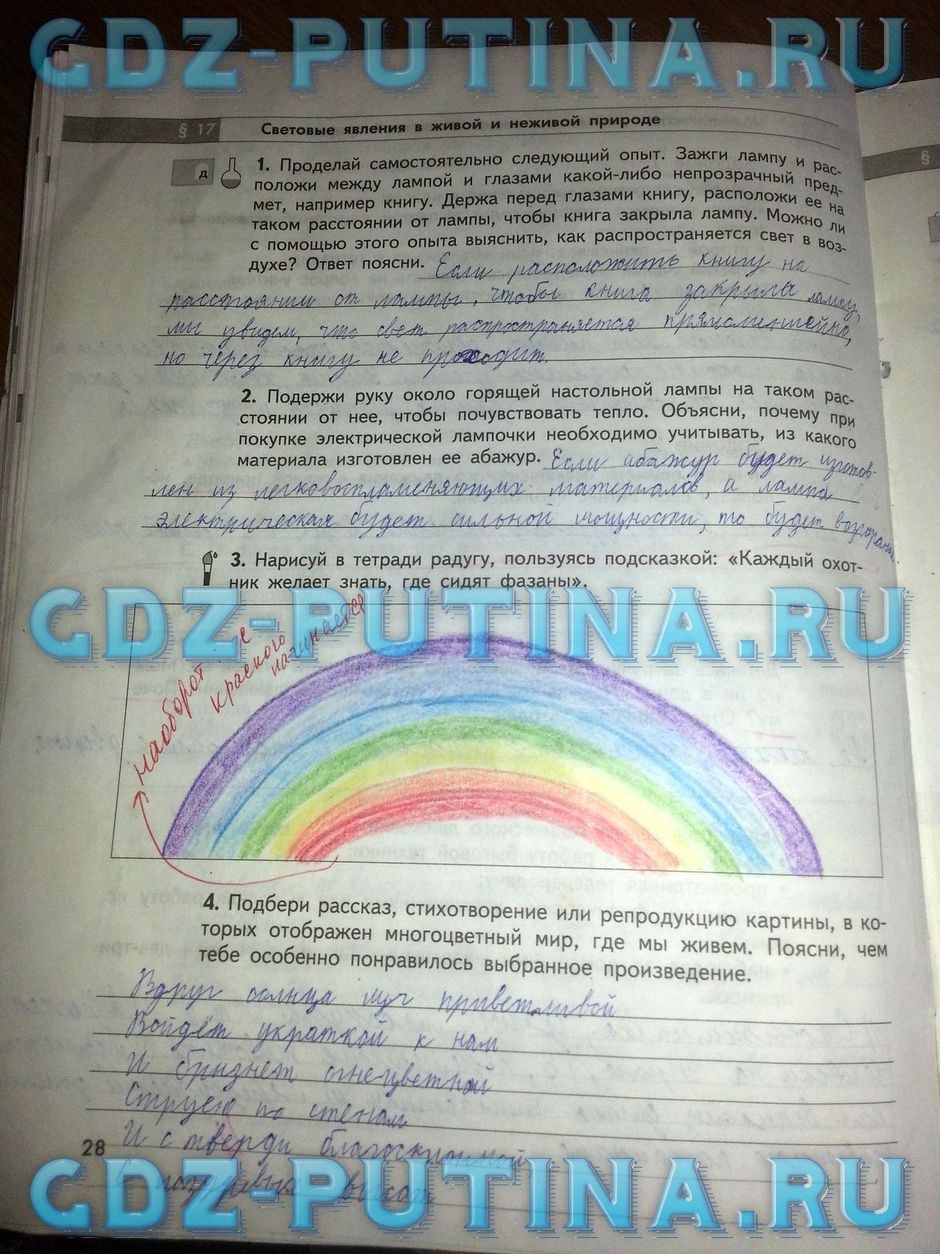 GDZ-PUTINA.RU
§ 17 Световые явления в живой и неживой природе
д
§
1. Проделай самостоятельно следующий опыт. Зажги лампу и рас-
положи между лампой и глазами какой-либо непрозрачный пред-
мет, например книгу. Держа перед глазами книгу, расположи ее на
таком расстоянии от лампы, чтобы книга закрыла лампу. Можно ли
с помощью этого опыта выяснить, как распространяется свет в воз-
духе? Ответ поясни. Если расположить книгу на
расстоянии от лампы, чтобы книга закрыла лампу,
мы увидем, что свет распространяется прямолинейно,
но через книгу не проходит.
2. Подержи руку около горящей настольной лампы на таком рас-
стоянии от нее, чтобы почувствовать тепло. Объясни, почему при
покупке электрической лампочки необходимо учитывать, из какого
материала изготовлен ее абажур. Если абажур будет изготов-
лен из легковоспламеняющих материалов, а лампа
электрическая будет сильной мощности, то будет возгорание
3. Нарисуй в тетради радугу, пользуясь подсказкой: «Каждый охот-
ник желает знать, где сидят фазаны».
GDZ-PUTINA.RU
наоборот с
красного
начинается
4. Подбери рассказ, стихотворение или репродукцию картины, в ко-
торых отображен многоцветный мир, где мы живем. Поясни, чем
тебе особенно понравилось выбранное произведение.
Вдруг солнца луч приветливой
Войдёт украткой к нам
И брызнет огнецветной
Струею по стенам
28
И с тверди благосклонной
С высот
GDZ-PUTINA.RU